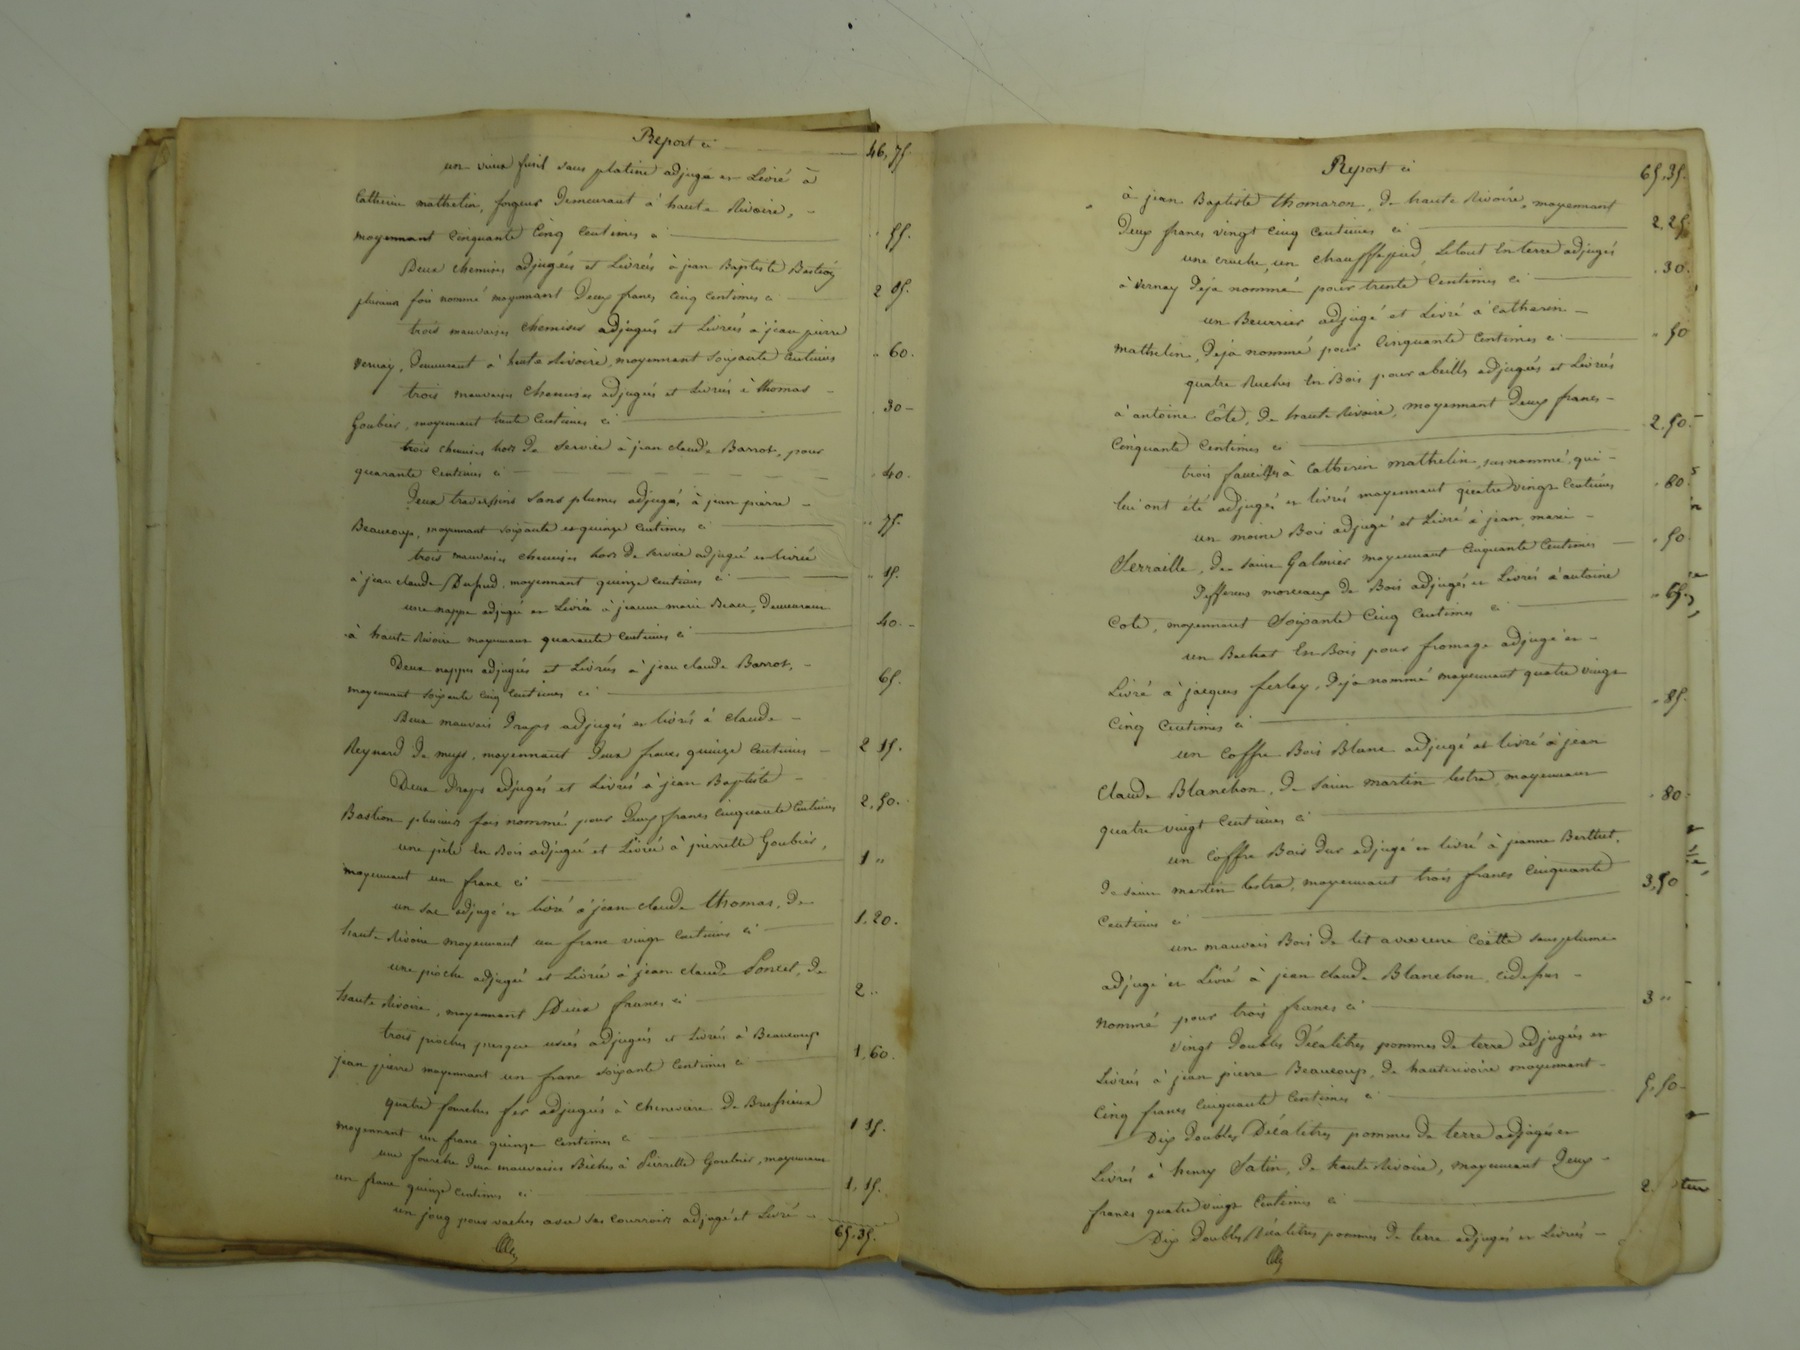 Report ci 46,75.
un vieux fusil sans platine adjugé et Livré à
Catherin mathelin, forgeur Demeurant à haute Rivoire,
moyennant Cinquante Cinq Centimes ci 55.
Deux chemises adjugées et Livrées à jean Baptiste Bastion
plusieurs fois nommé moyennant Deux francs Cinq Centimes ci 2 05.
trois mauvaises chemises adjugées et Livrées à jean pierre
vernay, Demeurant à haute Rivoire, moyennant soixante Centimes 60.
trois mauvaises chemises adjugées et Livrées à thomas
Goubier, moyennant trente Centimes ci 30
trois chemises hors De service à jean claude Barrot, pour
quarante Centimes ci 40
Deux traversins sans plumes adjugés à jean pierre
Beaucoup, moyennant soixante et quinze Centimes ci 75.
trois mauvaises chemises hors De service adjugées et livrées
à jean claude Dupud, moyennant quinze Centimes ci 15.
une nappe adjugée et Livrée à jeanne marie Beau, Demeurant
à haute Rivoire moyennant quarante Centimes ci 40.
Deux nappes adjugées et Livrées à jean claude Barrot,
moyennant soixante cinq Centimes ci 65.
Deux mauvais Draps adjugés et livrés à claude
Reynard de meys, moyennant Deux francs quinze Centimes 2 15.
Deux Draps adjugés et Livrés à jean Baptiste
Bastion plusieurs fois nommé pour Deux francs cinquante Centimes 2,50.
une pele En Bois adjugée et Livrée à pierrette Goubier,
moyennant un franc ci 1 "
un sac adjugé et livré à jean claude thomas, De
haute Rivoire moyennant un franc vingt Centimes ci 1.20.
une pioche adjugée et Livrée à jean claude Poncet, de
haute Rivoire, moyennant Deux francs ci 2 "
trois pioches presque usées adjugées et Livrées à Beaucoup
jean pierre moyennant un franc soixante Centimes ci 1,60.
quatre fourches fer adjugées à chenevière De Brussieux
moyennant un franc quinze Centimes ci 1 15.
une fourche Deux mauvaises Bêches à Pierrette Goubier, moyennant
un franc quinze Centimes ci 1,15.
un joug pour vaches avec ses courroies adjugé et Livré
65.35.
Report ci 65.35.
à jean Baptiste thomaron, de haute Rivoire, moyennant
Deux francs vingt Cinq Centimes ci 2,25.
une cruche, un chauffepied, Letout En terre adjugés
à vernay Déja nommé pour trente Centimes ci 30.
un Beurrier adjugé et Livré à Catherin
mathelin, Déja nommé pour Cinquante Centimes ci 50
quatre Ruches En Bois pour abeilles adjugées et Livrées
à antoine Côte, de haute Rivoire, moyennant Deux francs
Cinquante Centimes ci 2.50.
trois faucilles à Catherin mathelin, susnommé, qui
lui ont été adjugés et livrés moyennant quatre vingt Centimes 80.
un moine Bois adjugé et Livré à jean marie
Serraille, De saint Galmier moyennant Cinquante Centimes 50
Differens morceaux de Bois adjugés et Livrés à antoine
Cote, moyennant Soixante Cinq Centimes ci 65.
un Bachat En Bois pour fromage adjugé et
Livré à jacques ferlay, Déja nommé moyennant quatre vingt
Cinq Centimes ci 85.
un Coffre Bois Blanc adjugé et livré à jean
Claude Blanchon, De saint martin lestra, moyennant
quatre vingt Centimes ci 80
un Coffre Bois Dur adjugé et livré à jeanne Berthet,
De saint martin lestra, moyennant trois francs Cinquante
Centimes ci 3,50
un mauvais Bois de lit avec une Coëtte sans plume
adjugé et Livré à jean claude Blanchon, cidessus
nommé pour trois francs ci 3 "
vingt Doubles Décalitres pommes de terre adjugées et
Livrées à jean pierre Beaucoup, De hauterivoire moyennant
Cinq francs Cinquante Centimes ci 5,50
Dix Doubles Décalitres pommes De terre adjugées et
Livrés à henry Satin, De haute Rivoire, moyennant Deux
francs quatre vingt Centimes ci 2.
Dix Doubles Décalitres pommes de terre adjugés et Livrés